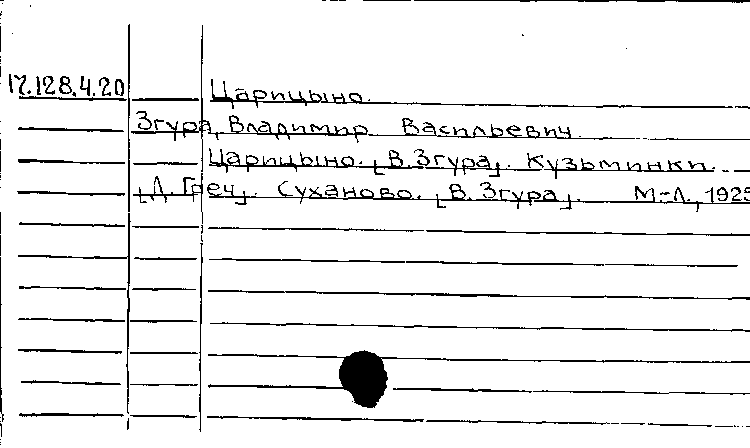 17.128.4.20 Царицыно.
Згура, Владимир Васильевич.
Царицыно. [В. Згура]. Кузьминки.
[Д. Греч]. Суханово. [В. Згура]. М.-Л., 1925